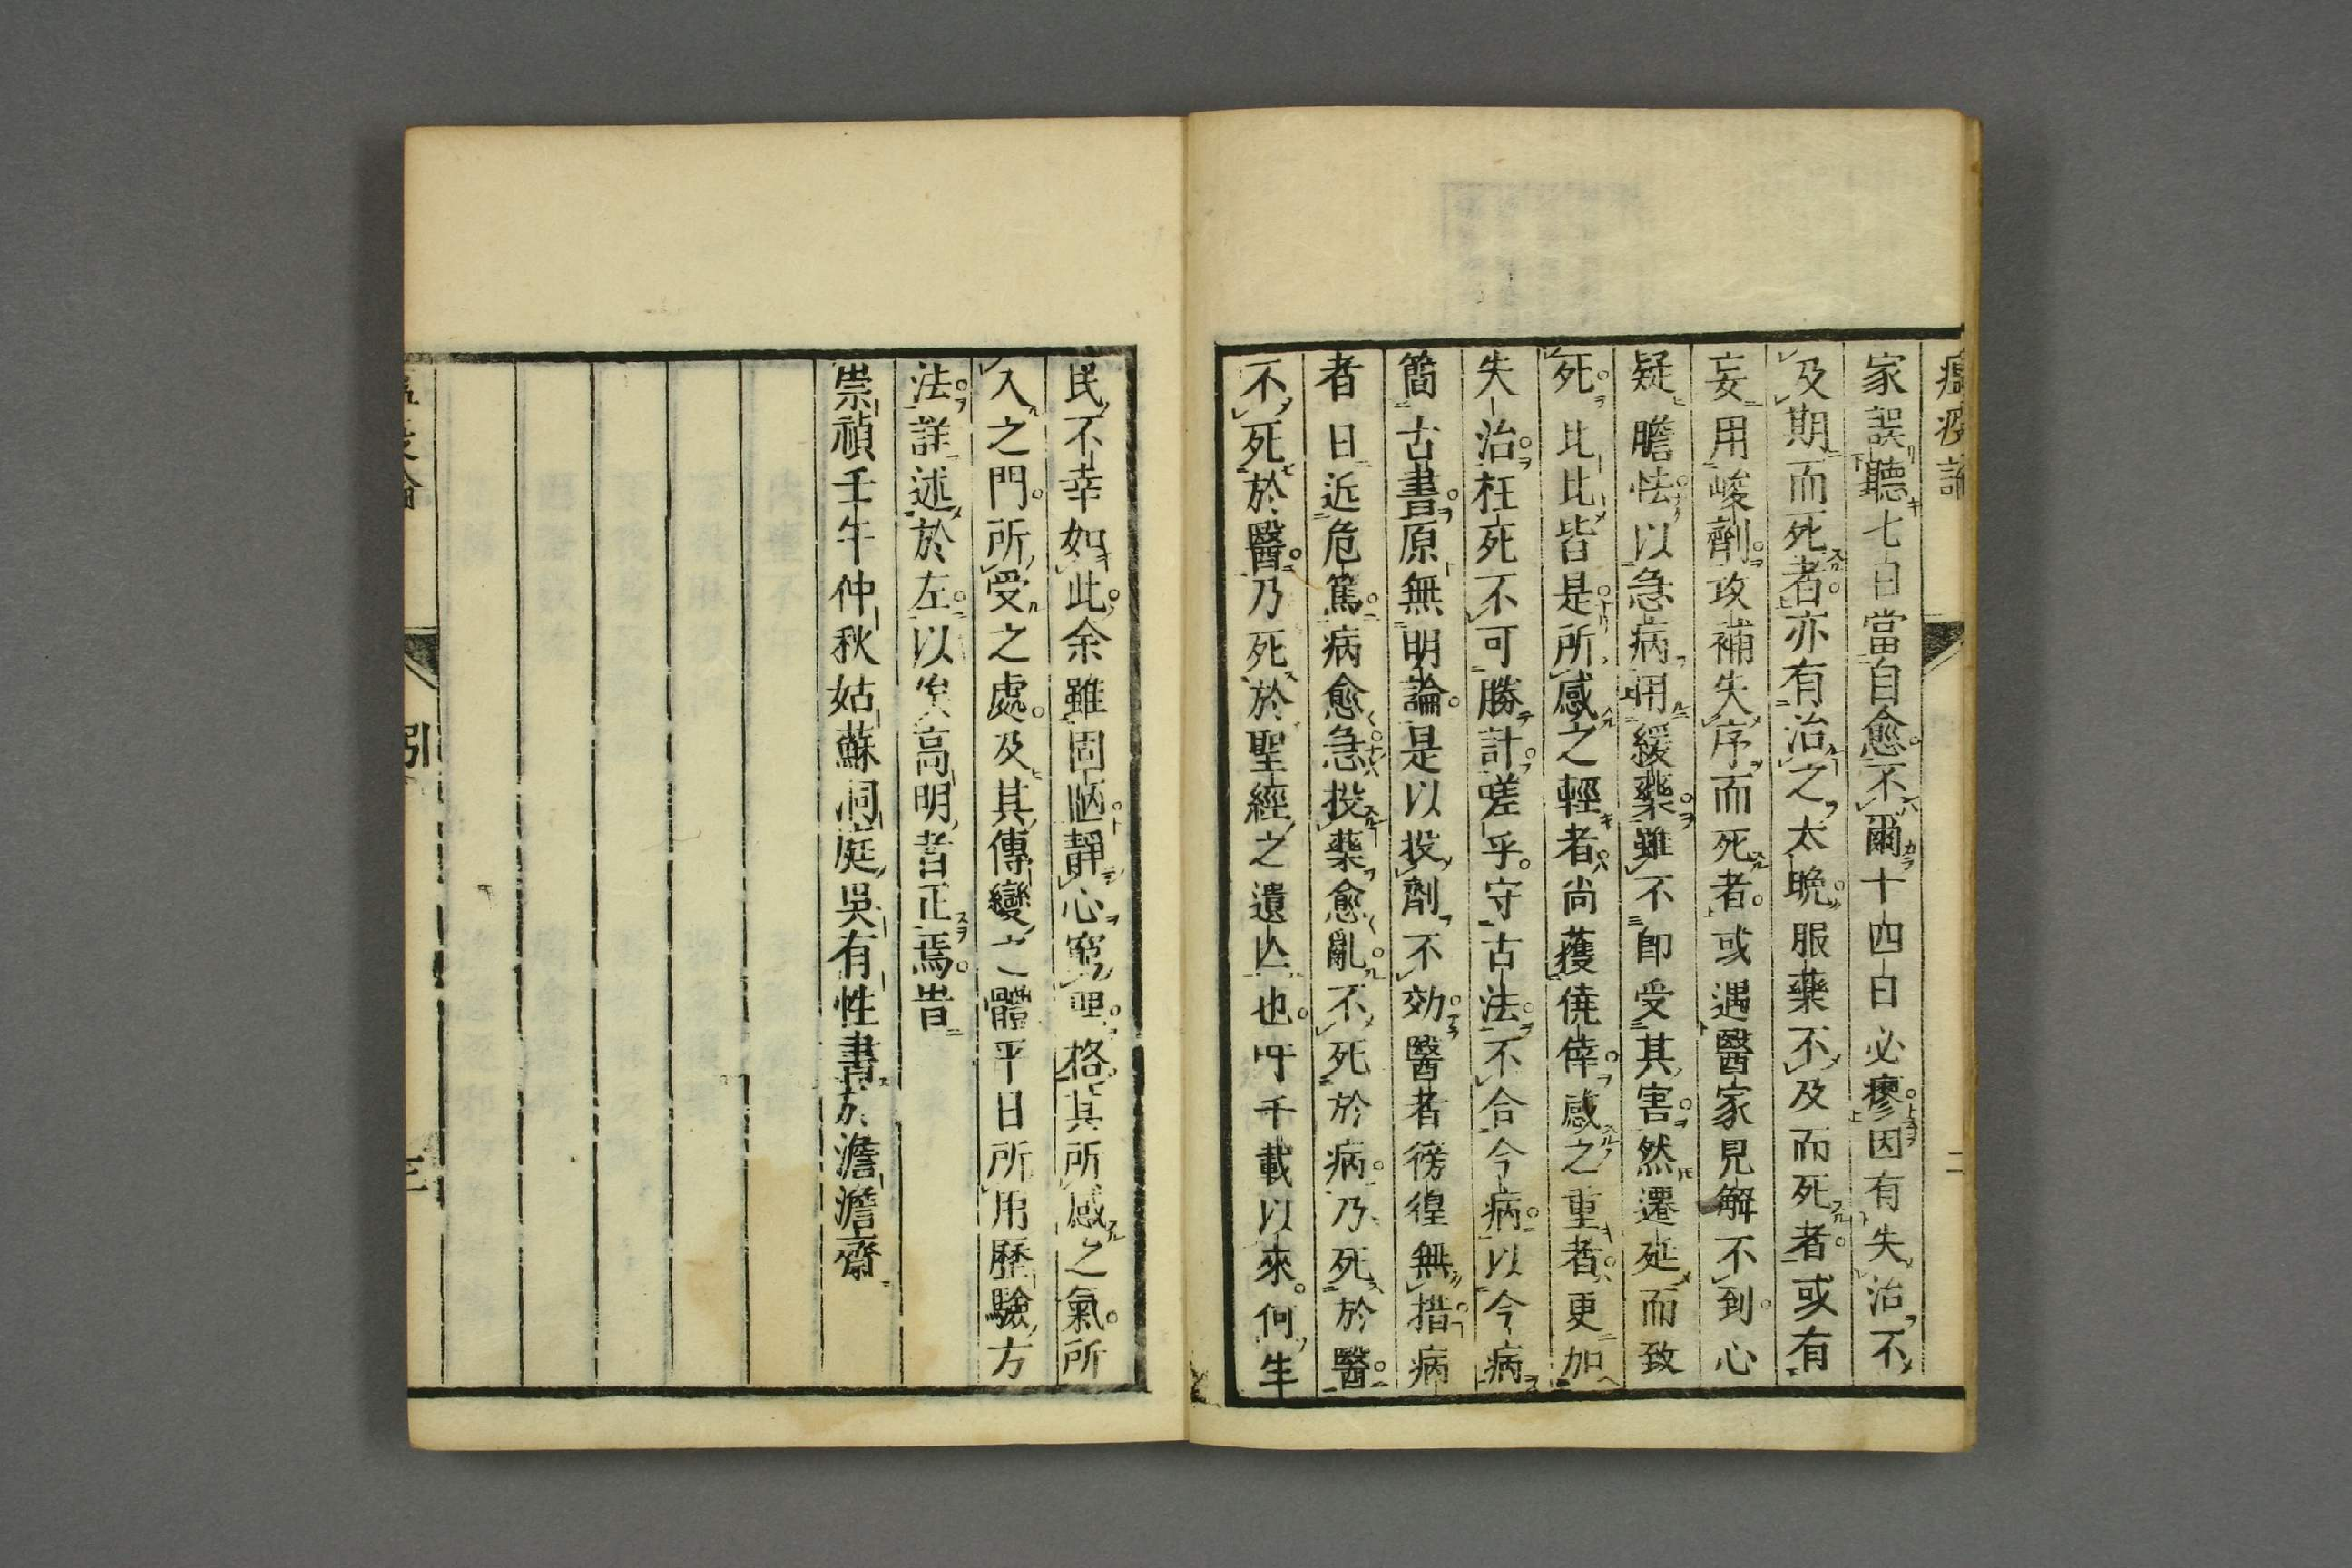 瘟疫論
二
家誤聽七日當自愈不爾十四日必瘳因有失治不
及期而死者亦有治之太晩服藥不及而死者或有
妄用峻劑攻補失序而死者或遇醫家見解不到心
疑膽怯以急病用緩藥雖不即受其害然遷延而致
死比比皆是所感之輕者尚獲僥倖感之重者更加
失治枉死不可勝計嗟乎守古法不合今病以今病
簡古書原無明論是以投劑不効醫者徬徨無措病
者日近危篤病愈急投藥愈亂不死於病乃死於醫
不死於醫乃死於聖經之遺亾也吁千載以來何生
民不幸如此余雖固陋靜心窮理格其所感之氣所
入之門所受之處及其傳變之體平日所用歷驗方
法詳述於左以俟高明者正焉旹
崇禎壬午仲秋姑蘇洞庭吳有性書於澹澹齋
引
三